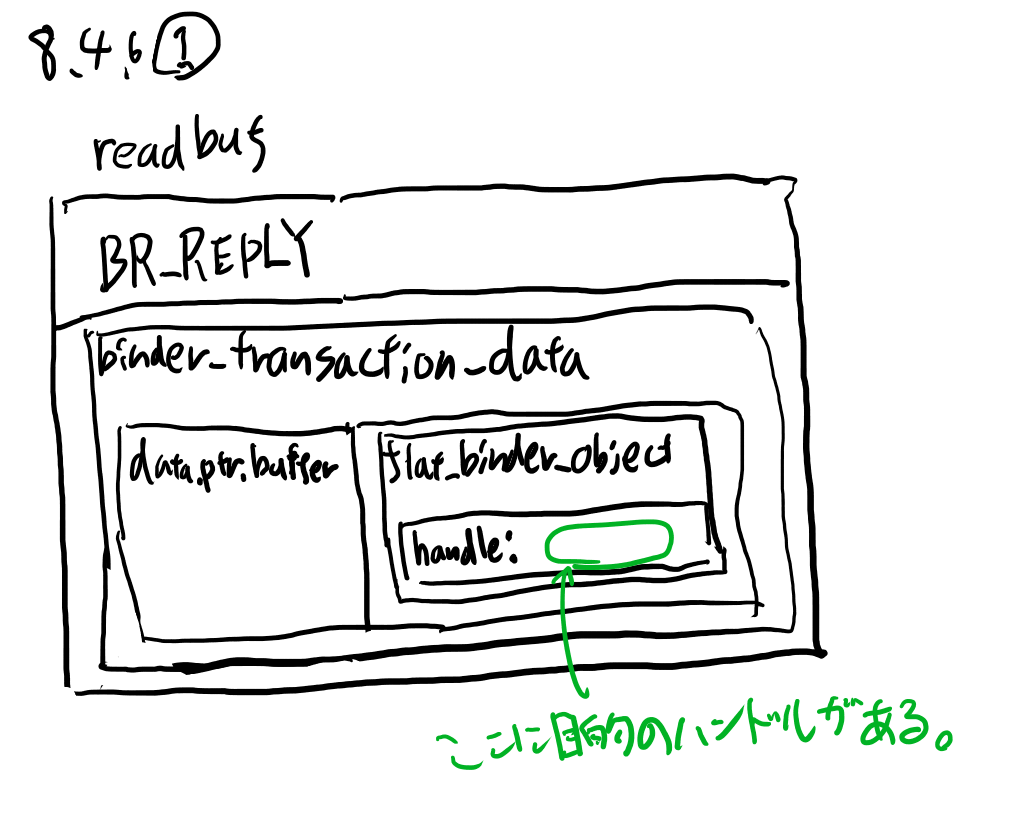 8.4.6 ①
readbuf
BR_REPLY
binder_transaction_data
data.ptr.buffer
flat_binder_object
handle:
ここに目的のハンドルがある。